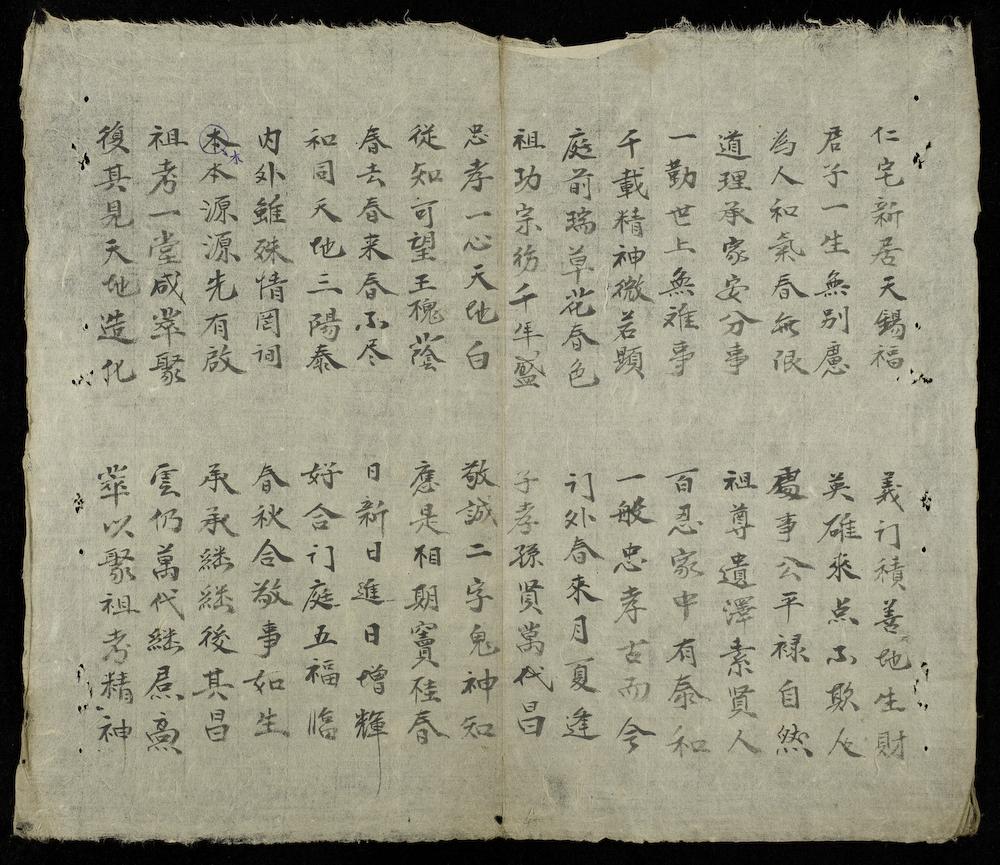 仁宅新居天錫福 義门積善地生財
君子一生無別慮 英雄乘点不欺人
為人和氣春無限 處事公平禄自然
道理承家安分事 祖尊遺澤素賢人
一勤世上無难事 百忍家中有泰和
千載精神微若顯 一般忠孝古而今
庭前瑞草花春色 订外春來月夏逢
祖功宗彷千年盛 子孝孫賢萬代昌
忠孝一心天地白 敬誠二字鬼神知
從知可望王槐蔭 應是相期竇桂春
春去春来春不尽 日新日進日增輝
和同天地三陽泰 好合订庭五福臨
内外雖殊情罔间 春秋合敬事如生
本木本源源先有啟 承承継継後其昌
祖考一堂咸萃聚 雲仍萬代継焄
復其見天地造化 萃以聚祖考精神